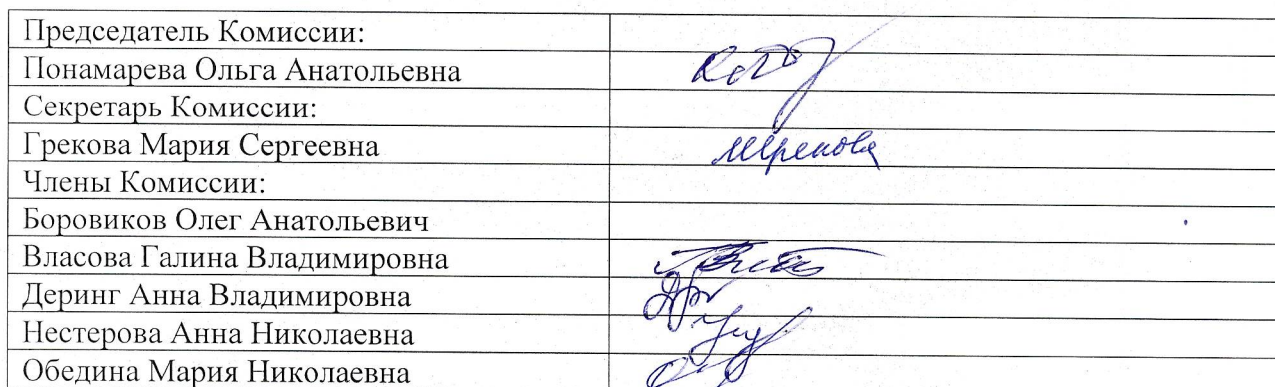 Председатель Комиссии:
Понамарева Ольга Анатольевна
Секретарь Комиссии:
Грекова Мария Сергеевна
МГрекова
Члены Комиссии:
Боровиков Олег Анатольевич
Власова Галина Владимировна
Деринг Анна Владимировна
Нестерова Анна Николаевна
Обедина Мария Николаевна